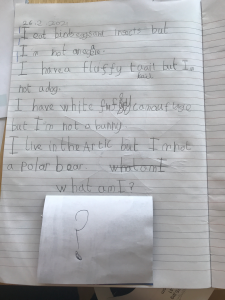 I eat birds eggs and insects but
I'm not an
I have a fluffy tail but I'm
not a dog.
I have white fur camouflage
but I'm not a bunny.
I live in the Artic but I'm not
a polar bear. what am I
what am I?
?